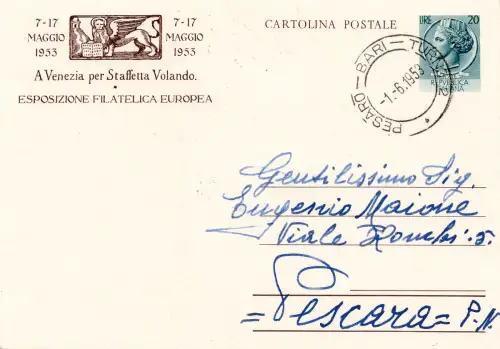 7-17 MAGGIO 1953
7-17 MAGGIO 1953
A Venezia per Staffetta Volando.
ESPOSIZIONE FILATELICA EUROPEA
CARTOLINA POSTALE
LIRE 20
REPUBBLICA
ITALIANA
PESARO — BARI — TUR
-1.-6.1953
Gentilissimo Sig.
Eugenio Maione
Viale
Pescara = P.N.